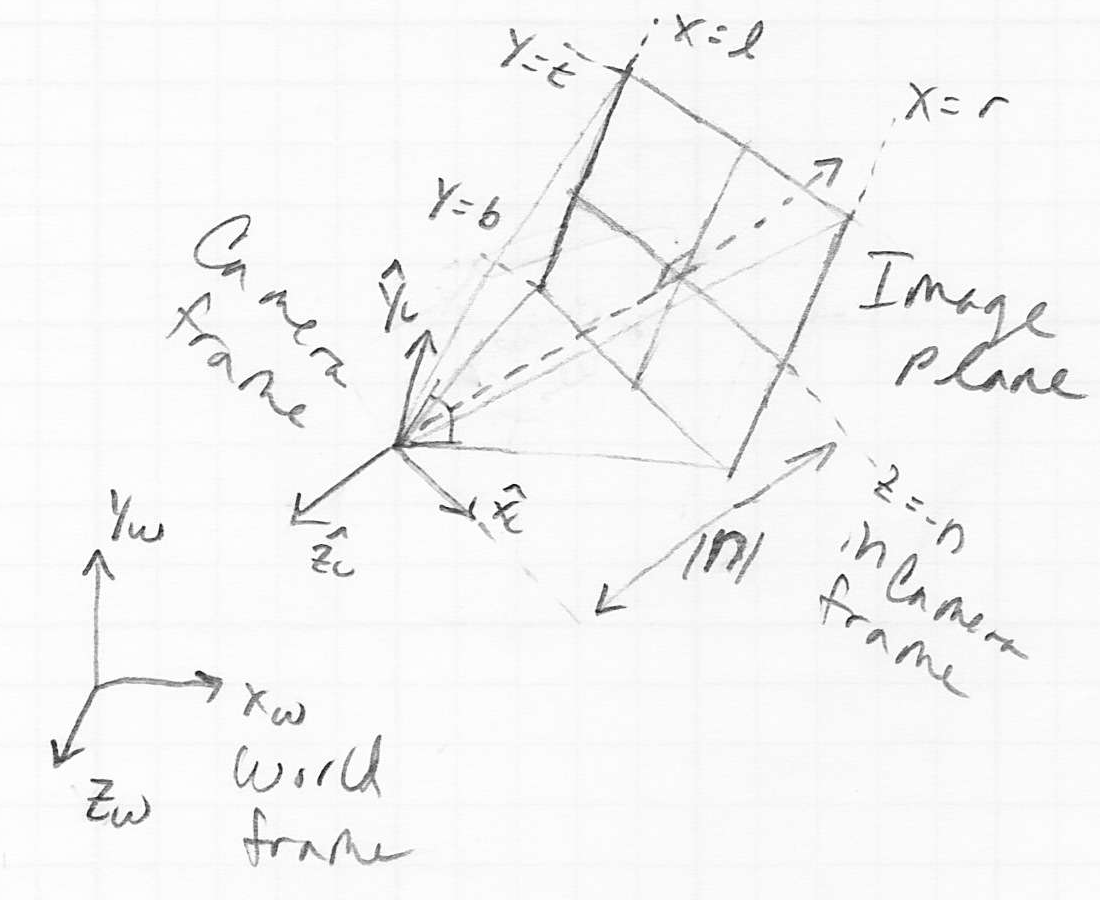 X=l
Y=t
X=r
Y=b
Camera
frame
Ŷc
Image
plane
X̂c
Ẑc
z=-n
in Camera
frame
|n|
Yw
Xw
Zw
World
frame